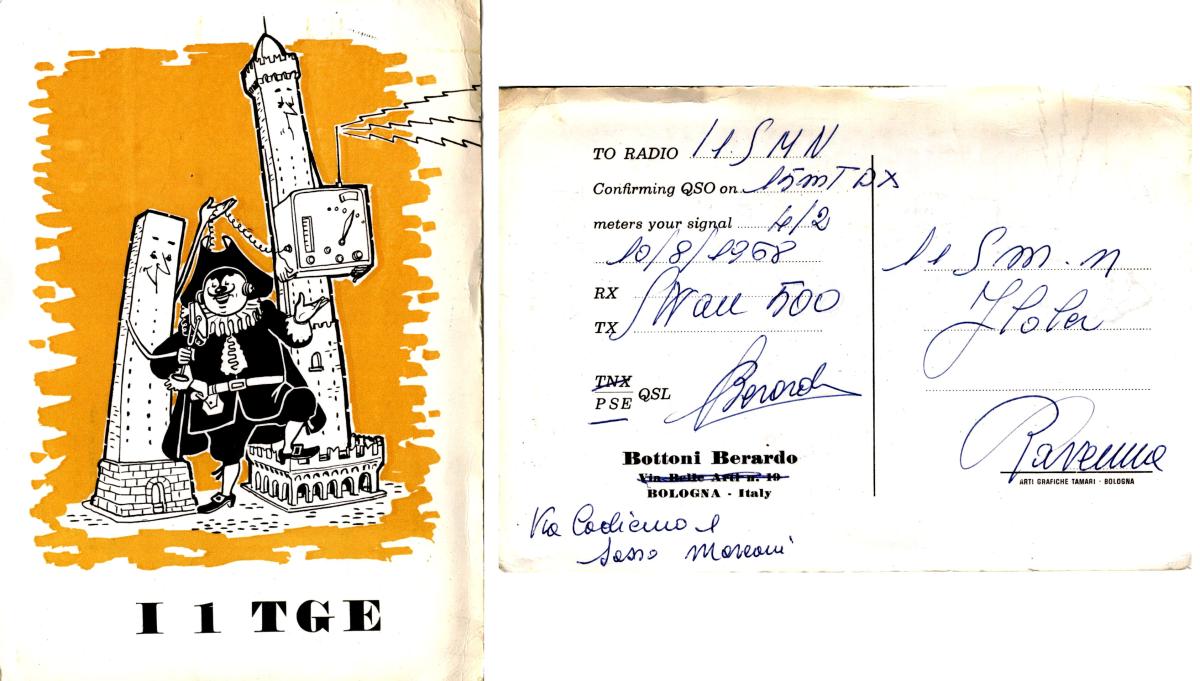 I 1 TGE
TO RADIO I1SMN
Confirming QSO on 15mT DX
meters your signal 4/2
10/8/1968
RX
TX Swan 500
TNX
PSE QSL Berardo
Bottoni Berardo
Via Belle Arti n. 19
BOLOGNA - Italy
Via
Sasso Marconi
I1Sm.n
Ravenna
ARTI GRAFICHE TAMARI - BOLOGNA